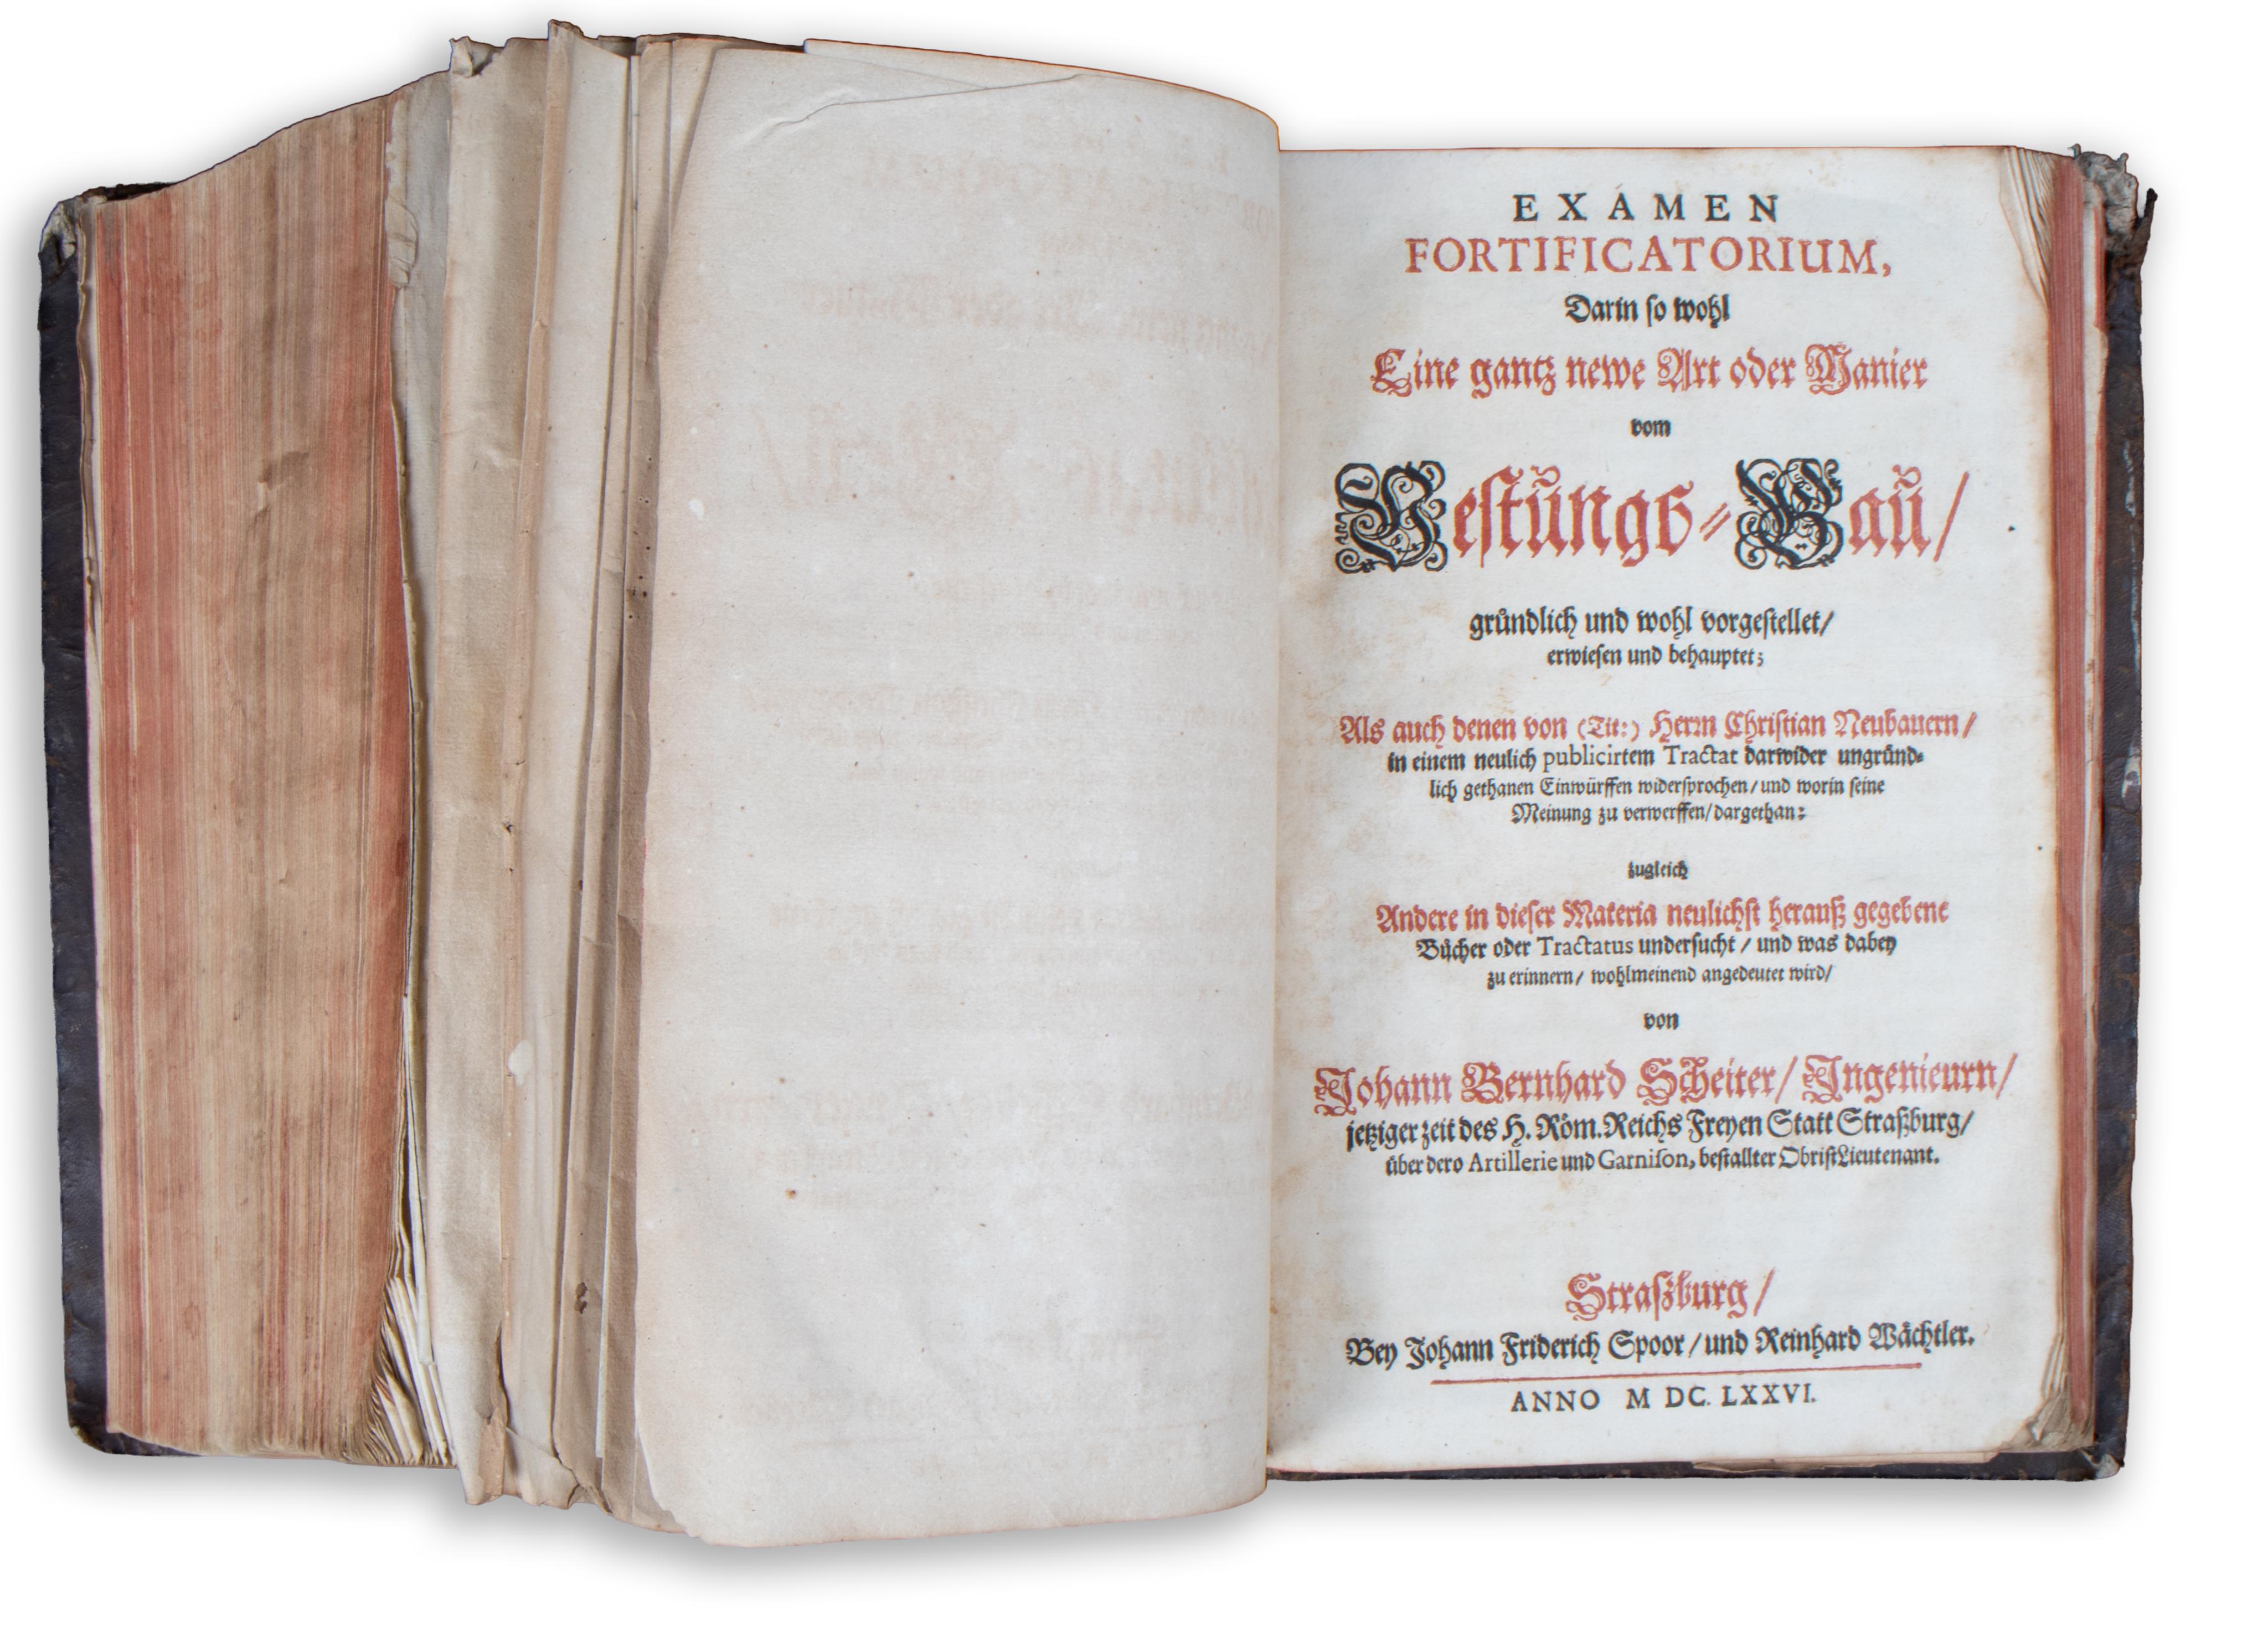 EXAMEN
FORTIFICATORIUM,
Darin so wohl
Eine gantz newe Art oder Manier
vom
Vestŭngs-Baŭ/
gründlich und wohl vorgestellet/
erwiesen und behauptet;
Als auch denen von (Tit:) Herrn Christian Neubauern/
in einem neulich publicirtem Tractat darwider ungründ-
lich gethanen Einwürffen widersprochen/ und worin seine
Meinung zu verwerffen/ dargethan:
zugleich
Andere in dieser Materia neulichst herauß gegebene
Bücher oder Tractatus undersucht / und was dabey
zu erinnern/ wohlmeinend angedeutet wird/
von
Johann Bernhard Scheiter/ Ingenieurn/
jetziger zeit des H. Röm. Reichs Freyen Statt Straßburg/
über dero Artillerie und Garnison, bestallter ObristLieutenant.
Straßburg/
Bey Johann Friderich Spoor / und Reinhard Wächtler.
ANNO M DC. LXXVI.